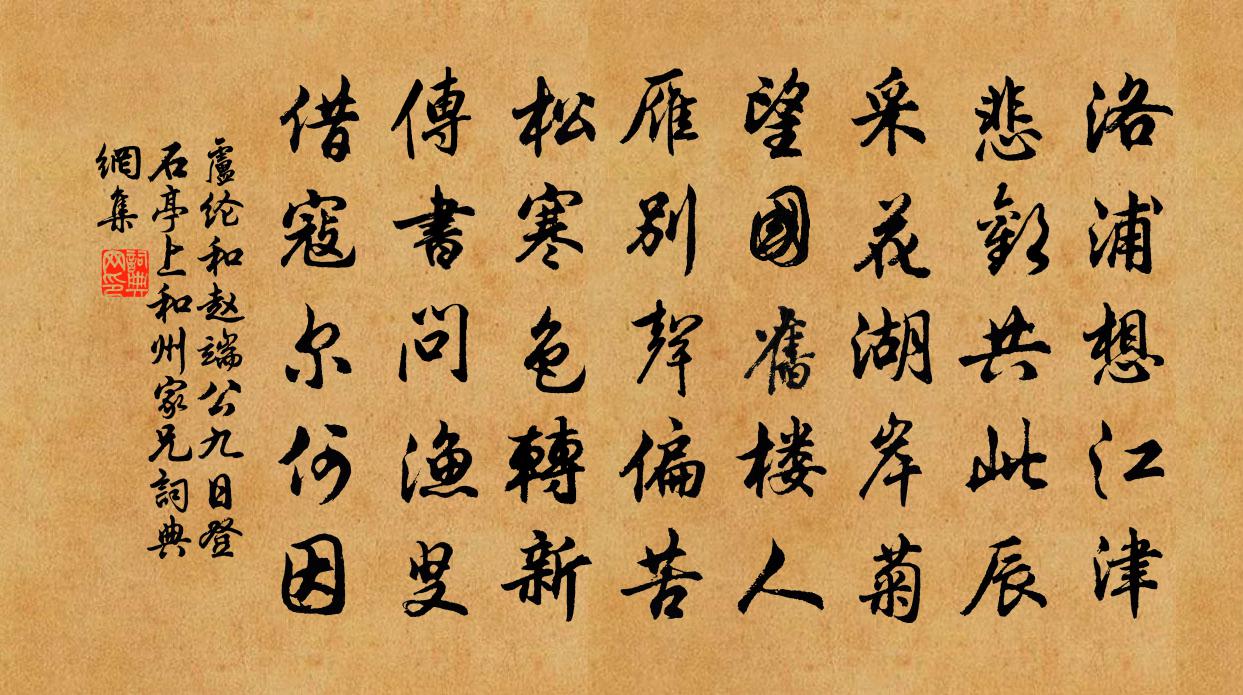 洛浦想江津
悲歡共此辰
采花湖岸菊
望國舊楼人
雁別聲偏苦
松寒色轉新
傳書問漁叟
借寇尔何因
盧纶和赵端公九日登
石亭上和州家兄詞典
網集
詞典
网印